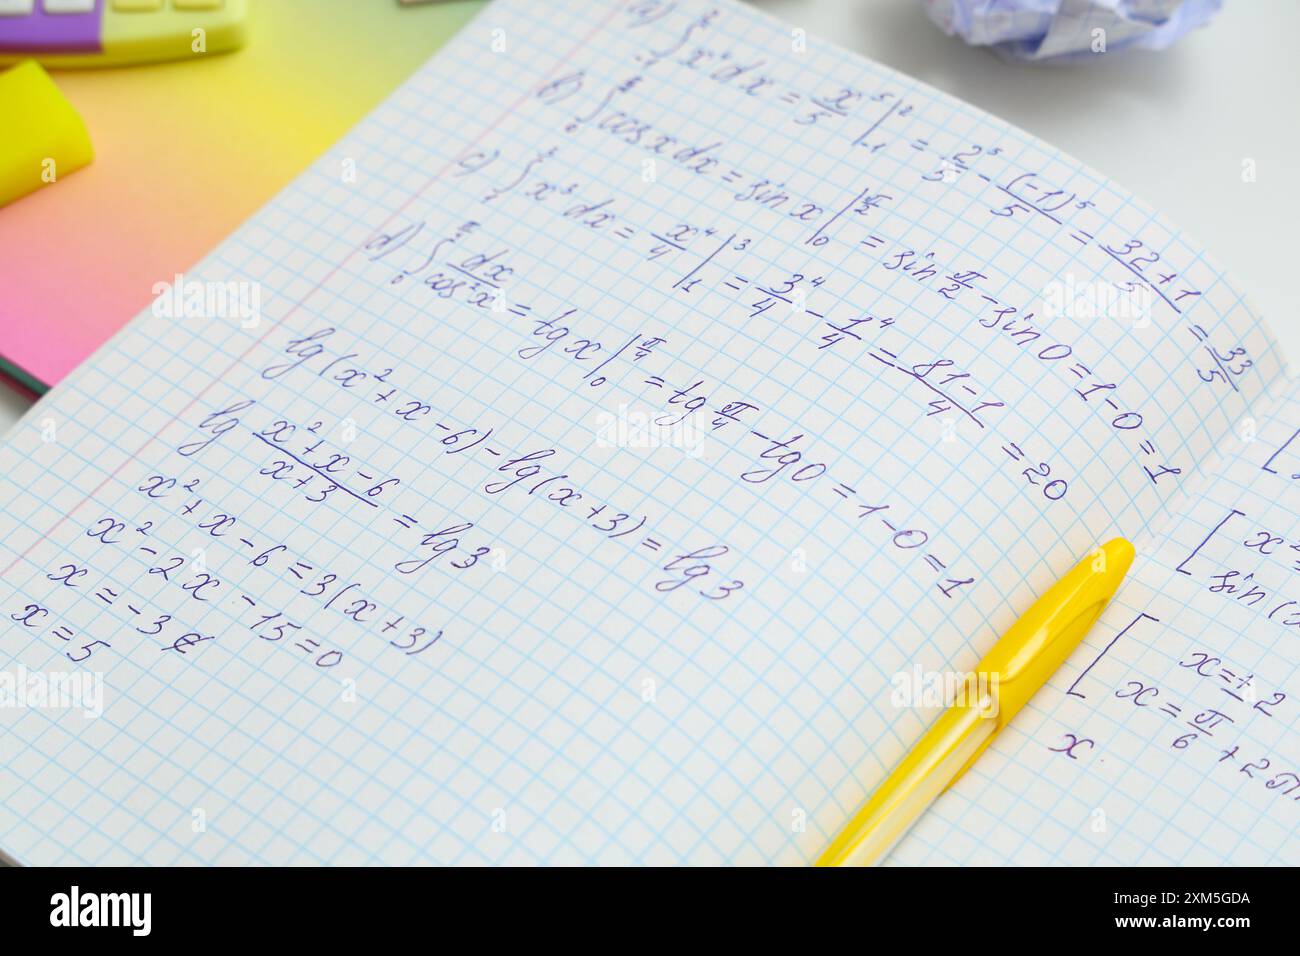 a) ∫₋₁² x⁴dx = x⁵/5 |₋₁² = 2⁵/5 - (-1)⁵/5 = 32+1/5 = 33/5
b) ∫₀^π/2 cosxdx = sin x |₀^π/2 = sin π/2 - sin 0 = 1-0 = 1
c) ∫₁³ x³dx = x⁴/4 |₁³ = 3⁴/4 - 1⁴/4 = 81-1/4 = 20
d) ∫₀^π/4 dx/cos²x = tg x |₀^π/4 = tg π/4 - tg 0 = 1-0 = 1
lg(x²+x-6)-lg(x+3) = lg 3
lg x²+x-6/x+3 = lg 3
x²+x-6 = 3(x+3)
x²-2x-15=0
x=-3 ∉
x=5
sin(
x=±2
x=π/6+2π
x
alamy
Image ID: 2XM5GDA
www.alamy.com